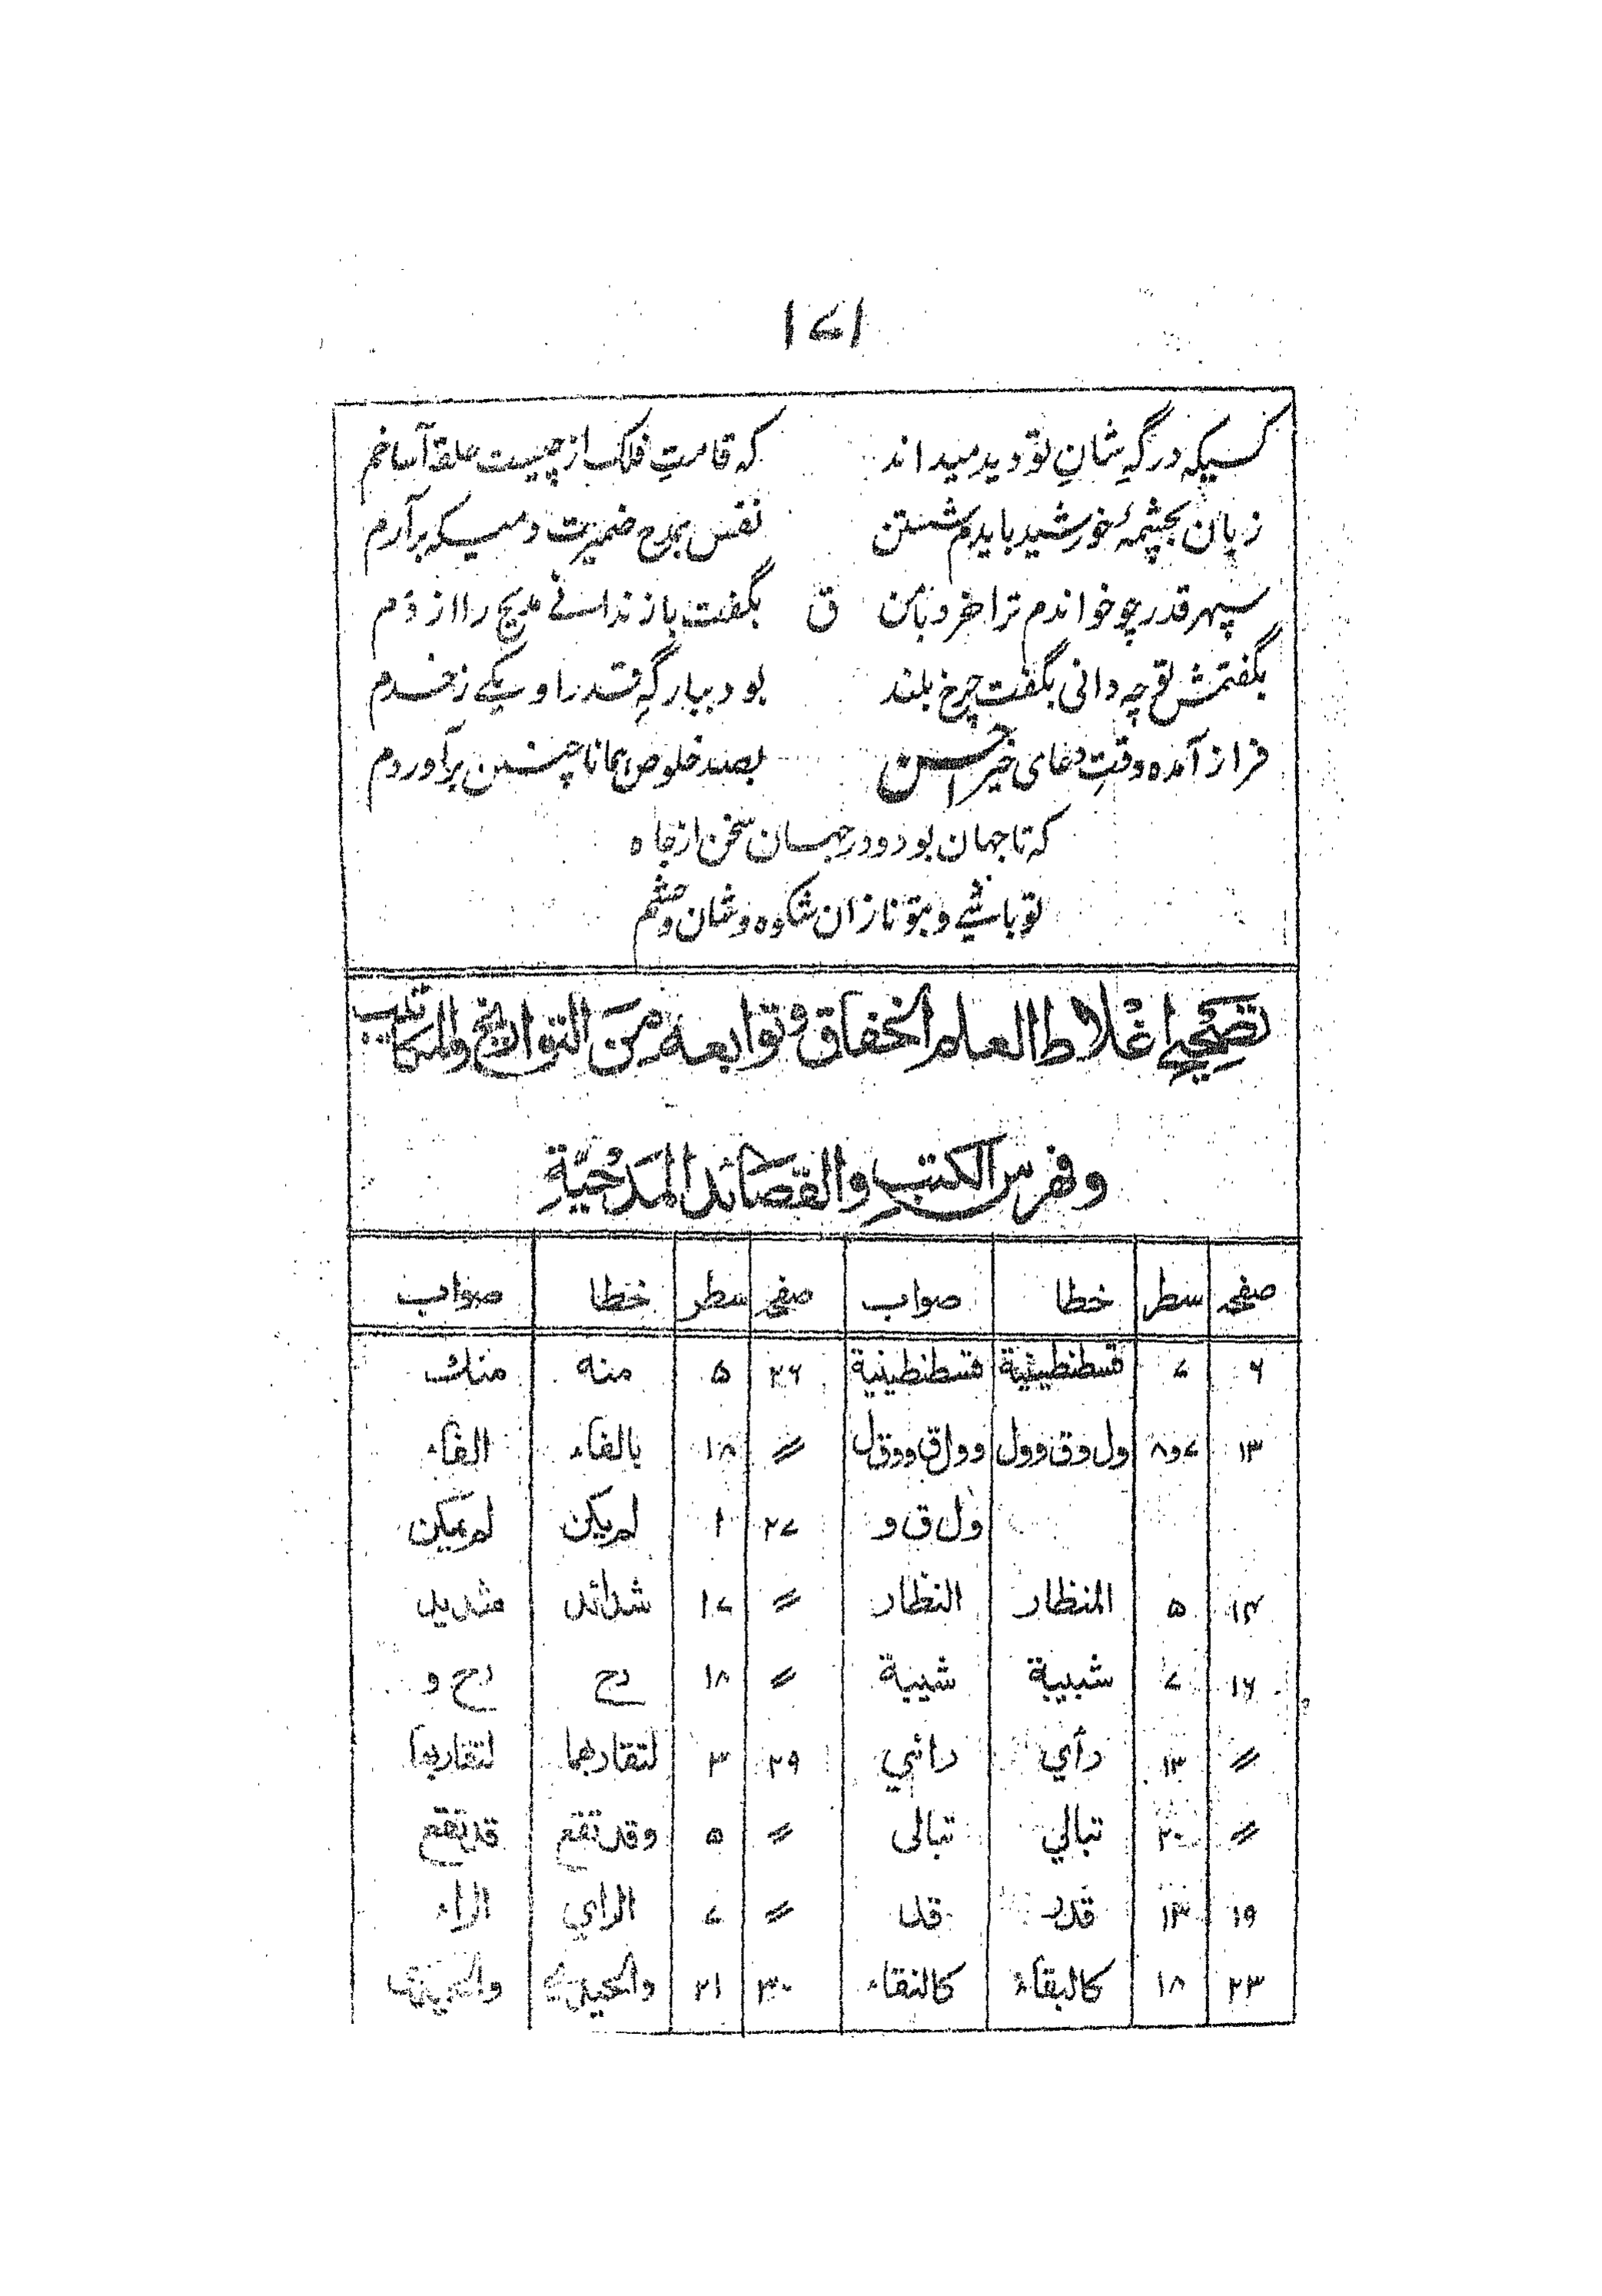 ۱۷۱
کسیکه درگهِ شانِ تو دید میداند که قامتِ فلک از چیست حلقه آسا خم
زبان بچشمهٔ خورشید بایدم شستن نفس بمدح ضمیرت دمیکه برآرم
سپهر قدر چو خواندم ترا خرد بامن ق بگفت باز ندانی مدیح را از ذم
بگفتمش تو چه دانی بگفت چرخ بلند بود ببارگهِ قدر او یکے ز خدم
فراز آمده وقتِ دعای خیر احسن بصد خلوص همانا چنین برآوردم
که تا جهان بود و در جهان سخن از جاه
تو باشیے و بتو نازان شکوه و شان و حشم
تصحیح اغلاط العلم الخفاق و توابعه من التواریخ والمکاتیب
وفهرس الکتب والقصائد المَدْحیّةِ
صفحہ سطر خطا صواب صفحہ سطر خطا صواب
۶ ۷ قسطنطینیة قسطنطینیة ۲۶ ۵ منه منك
۱۳ ۷و۸ ول وق وول وول ق ووق ل 〃 ۱۸ بالفاء الفاء
ول ق و ۲۷ ۱ لم یکن لم یمکن
۱۴ ۵ المنظار النظار 〃 ۱۷ شدائد شدید
۱۶ ۷ شبیبة شیبة 〃 ۱۸ رح رح و
〃 ۱۳ رأي رائي ۲۹ ۳ لتقاربهما لتقاربها
〃 ۲۰ تبالي تبالى 〃 ۵ وقد تقع قد تقع
۱۹ ۱۳ قدر قد 〃 ۷ الراي الراء
۲۳ ۱۸ کالبقاء کالنقاء ۳۰ ۲۱